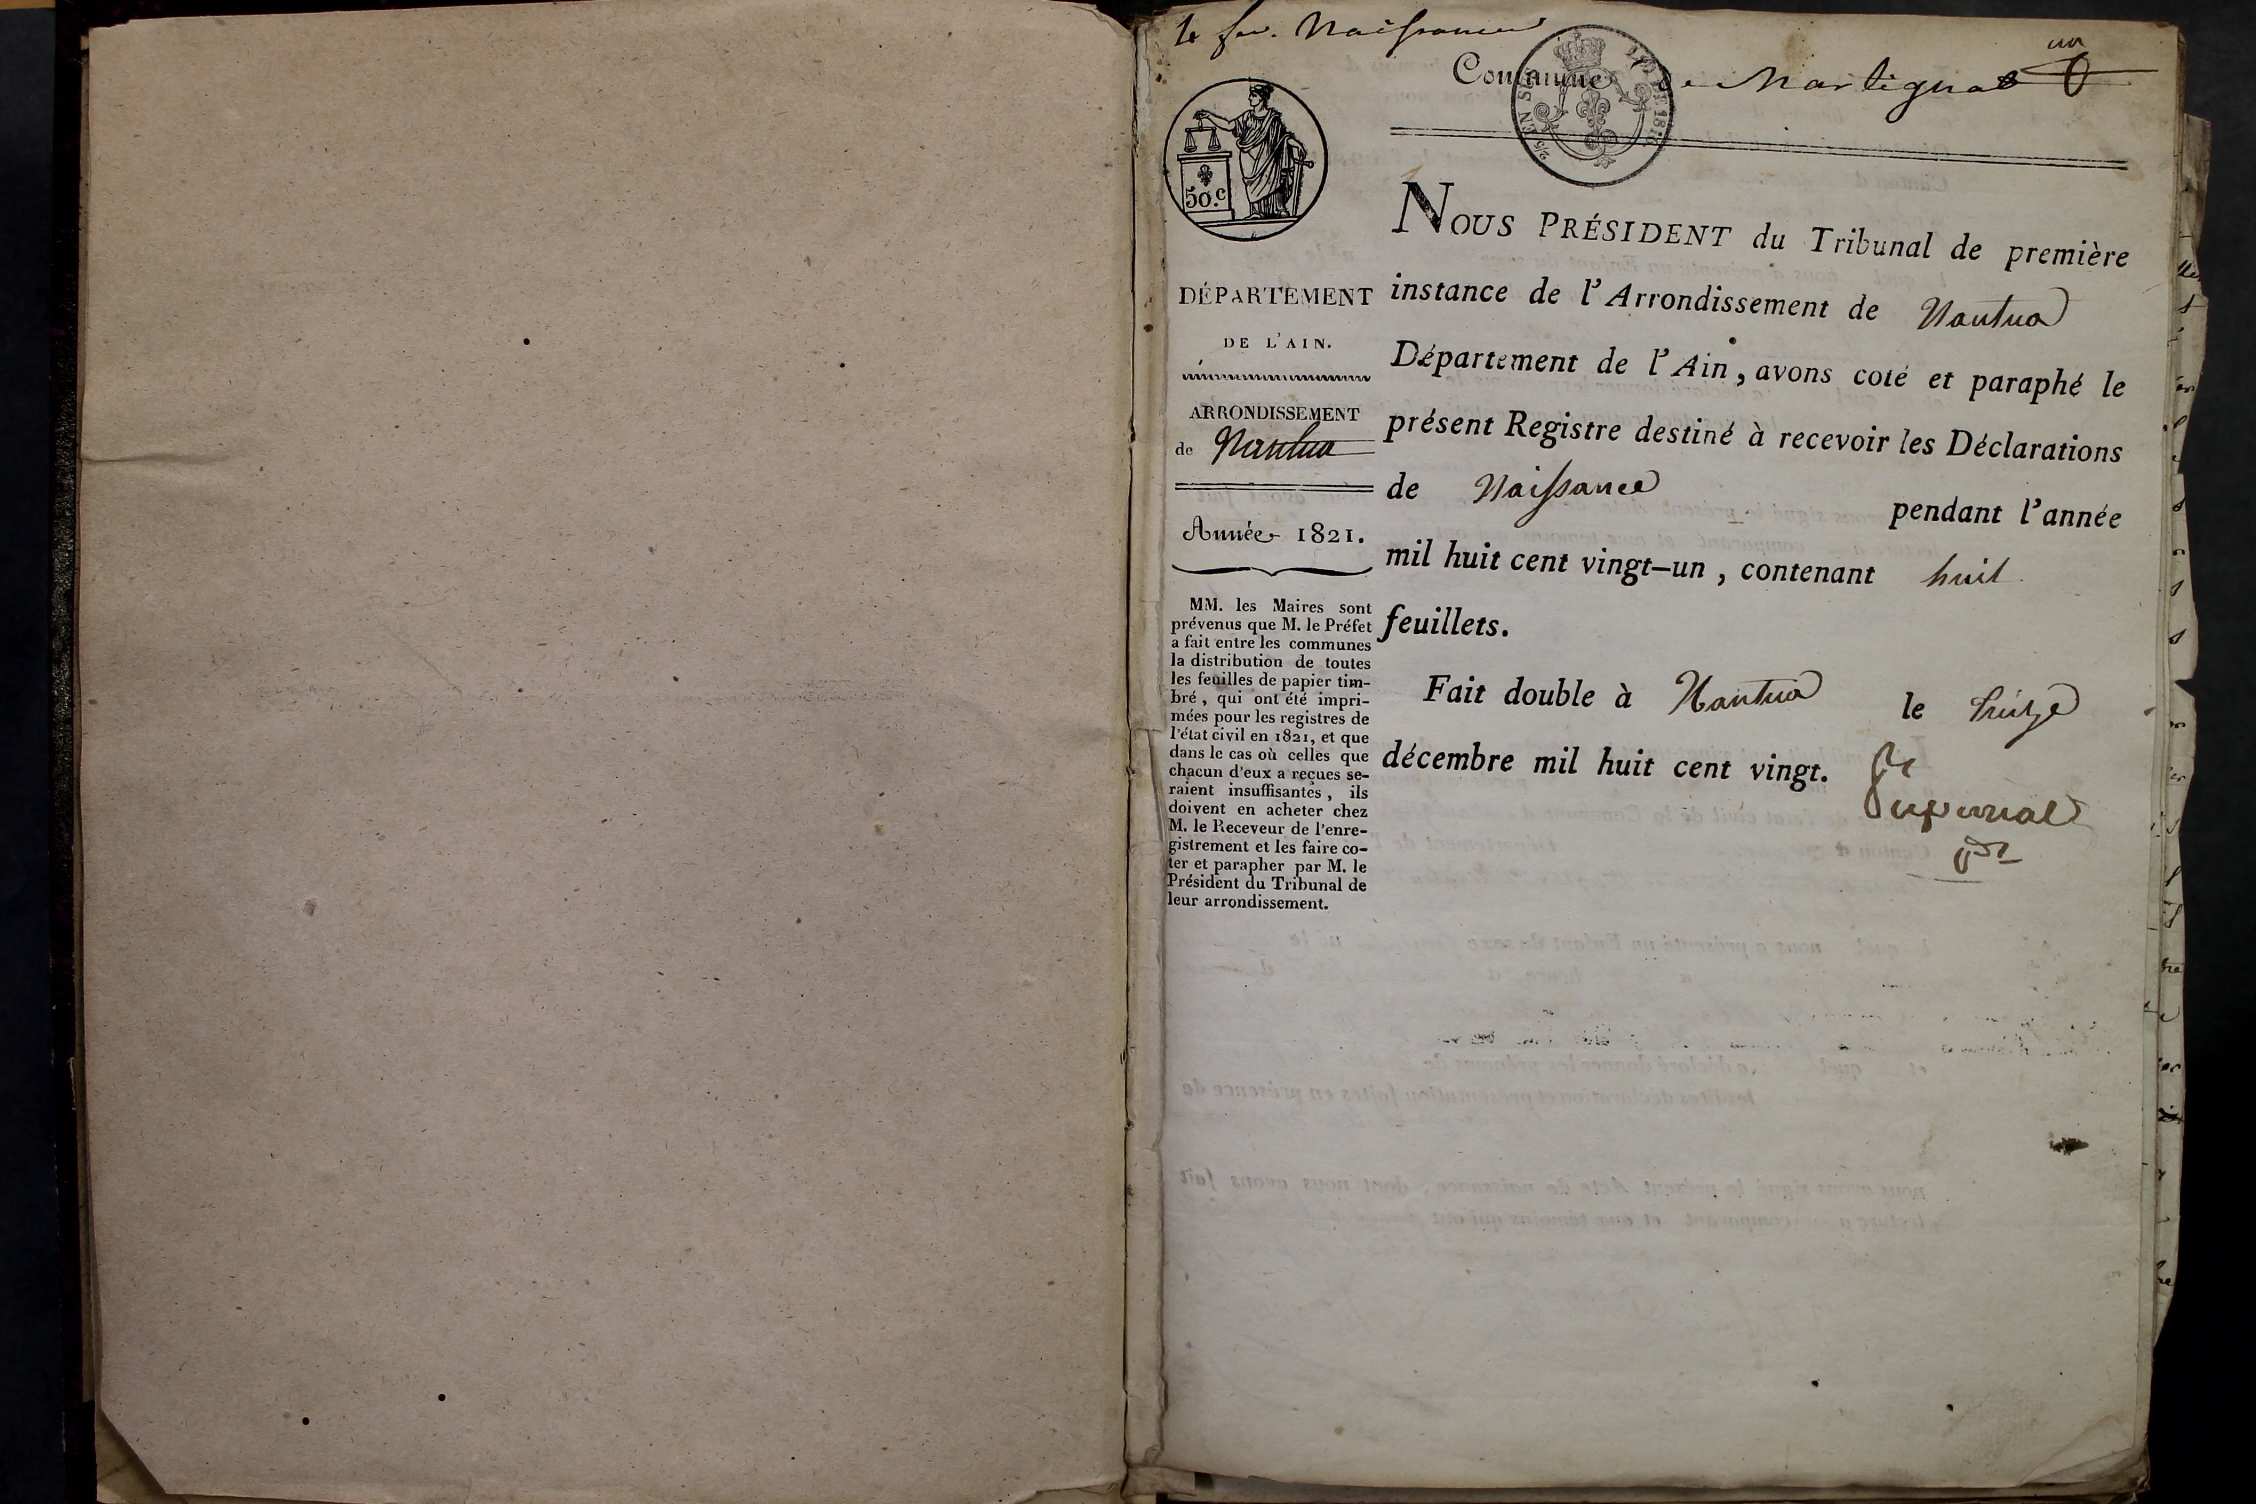 Naissance
un
Commune de Martignat
50.c
DÉPARTEMENT
DE L'AIN.
ARRONDISSEMENT
de Nantua
Année 1821.
MM. les Maires sont
prévenus que M. le Préfet
a fait entre les communes
la distribution de toutes
les feuilles de papier tim-
bré, qui ont été impri-
mées pour les registres de
l'état civil en 1821, et que
dans le cas où celles que
chacun d'eux a reçues se-
raient insuffisantes, ils
doivent en acheter chez
M. le Receveur de l'enre-
gistrement et les faire co-
ter et parapher par M. le
Président du Tribunal de
leur arrondissement.
NOUS PRÉSIDENT du Tribunal de première
instance de l'Arrondissement de Nantua
Département de l'Ain, avons coté et paraphé le
présent Registre destiné à recevoir les Déclarations
de Naissance pendant l'année
mil huit cent vingt-un, contenant huit
feuillets.
Fait double à Nantua le
décembre mil huit cent vingt.